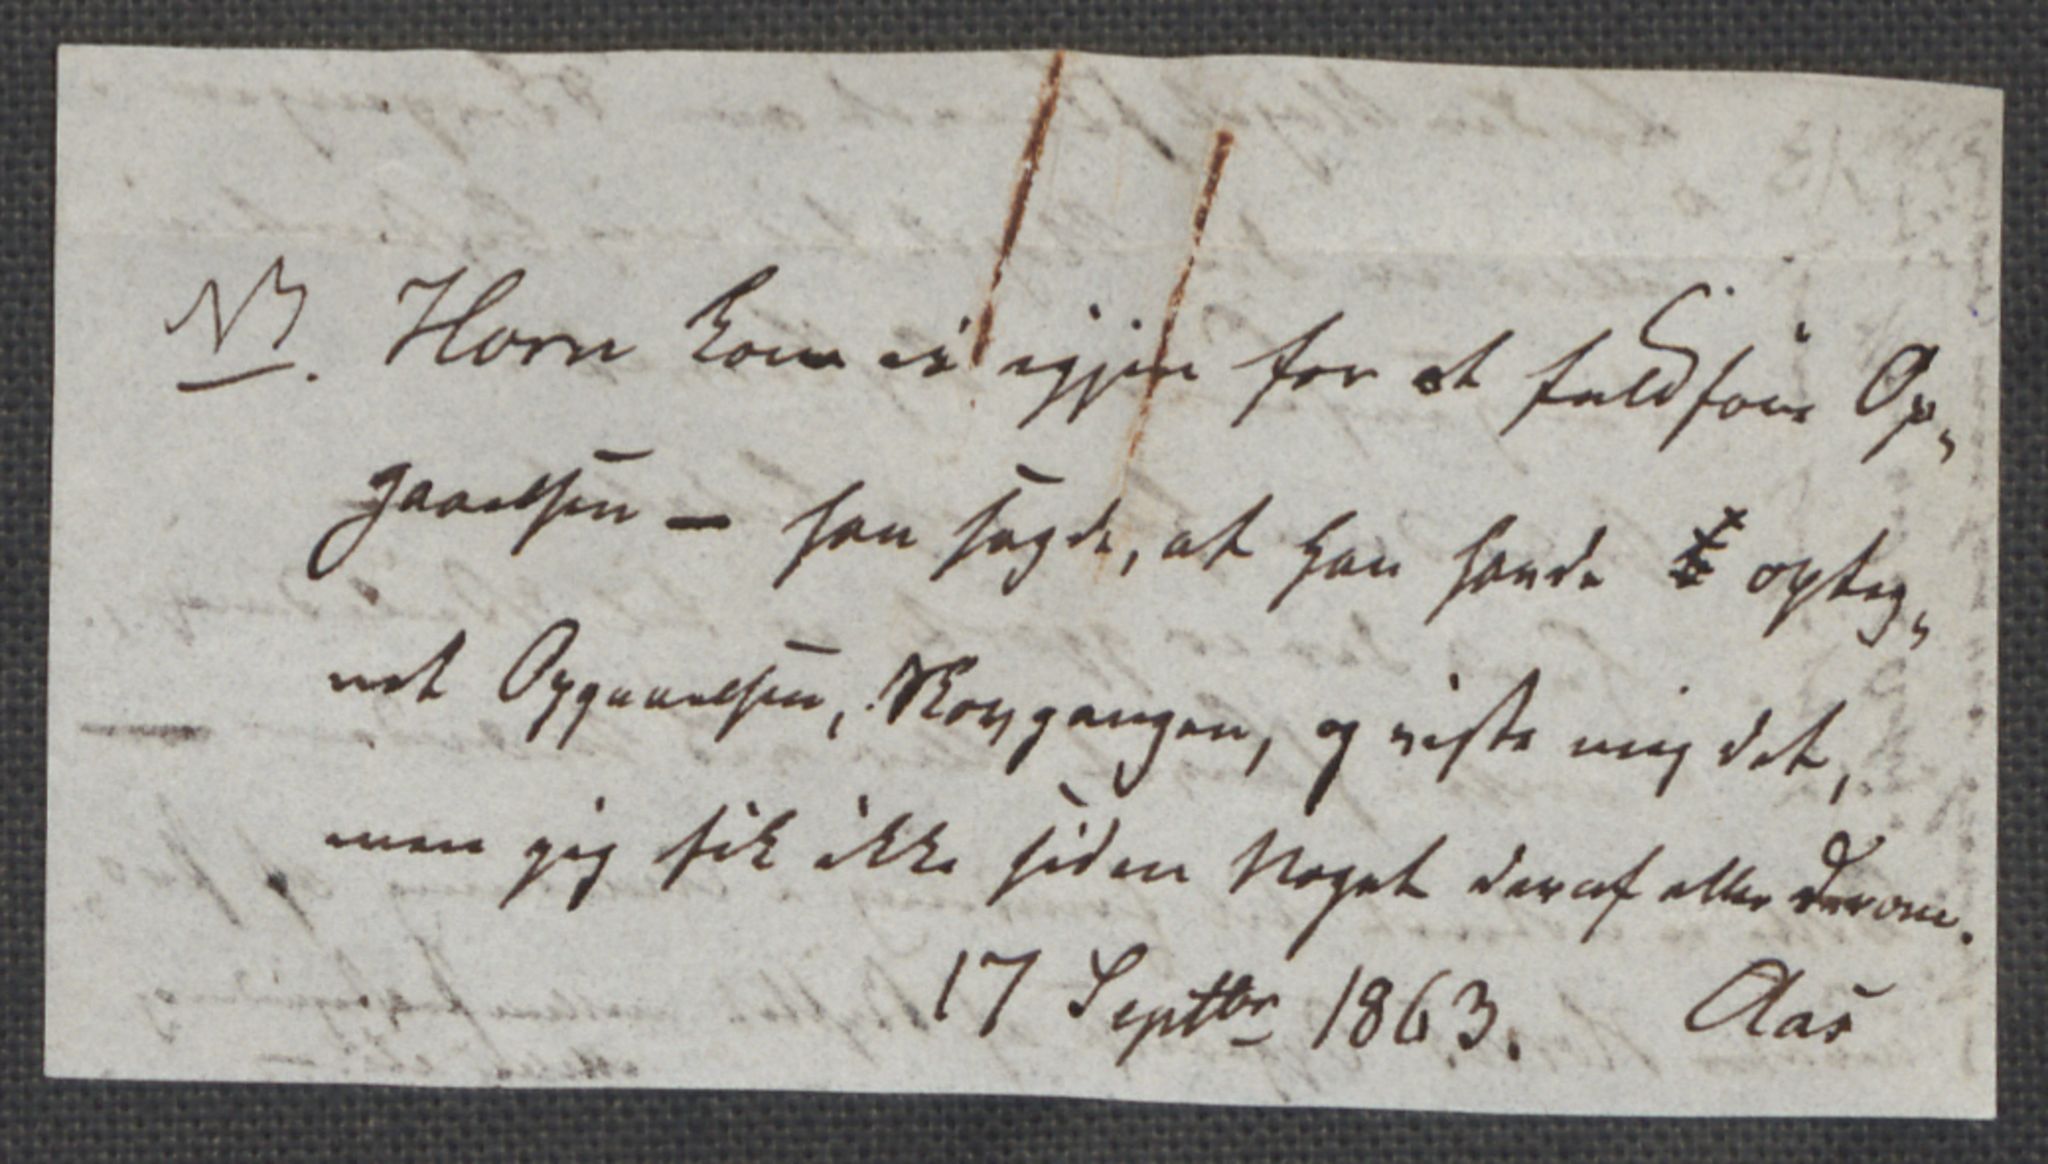 NB. Horn kom ei igjen for at fuldføre Op„
gaaelsen — han sagde, at han havde opteg„
net Opgaaelsen, Kovgangen, og viste mig det,
men jeg fik ikke siden Noget deraf eller derom.
17 Septbr 1863. Aas